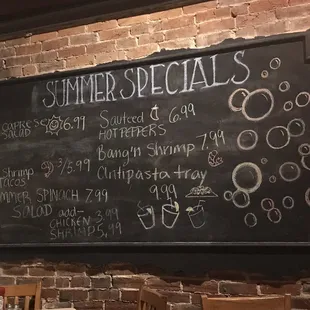 SUMMER SPECIALS
CAPRESE
SALAD 6.99
Shrimp
Tacos 3/5.99
MMER SPINACH 7.99
SALAD add-
CHICKEN 3.99
SHRIMP 5.99
Sauteed 6.99
HOT PEPPERS
Bang'n Shrimp 7.99
Antipasta tray
9.99